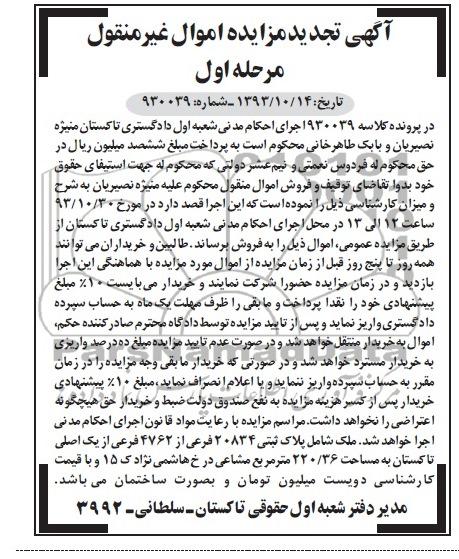 آگهی تجدید مزایده اموال غیر منقول
مرحله اول
تاریخ: ۱۳۹۳/۱۰/۱۴ ـ شماره: ۹۳۰۰۳۹
در پرونده کلاسه ۹۳۰۰۳۹ اجرای احکام مدنی شعبه اول دادگستری تاکستان منیژه
نصیریان و بابک طاهرخانی محکوم است به پرداخت مبلغ ششصد میلیون ریال در
حق محکوم له فردوس نعیمتی و نیم عشر دولتی که محکوم له جهت استیفای حقوق
خود بدوا تقاضای توقیف و فروش اموال منقول محکوم علیه منیژه نصیریان به شرح
و میزان کارشناسی ذیل را نموده است که این اجرا قصد دارد در مورخ ۹۳/۱۰/۳۰
ساعت ۱۲ الی ۱۳ در محل اجرای احکام مدنی شعبه اول دادگستری تاکستان از
طریق مزایده عمومی، اموال ذیل را به فروش برساند. طالبین و خریداران می توانند
همه روز تا پنج روز قبل از زمان مزایده از اموال مورد مزایده با هماهنگی این اجرا
بازدید و در زمان مزایده حضورا شرکت نمایند و خریدار می بایست ۱۰٪ مبلغ
پیشنهادی خود را نقدا پرداخت و مابقی را ظرف مهلت یک ماه به حساب سپرده
دادگستری واریز نماید و پس از تایید مزایده توسط دادگاه محترم صادر کننده حکم،
اموال به خریدار منتقل خواهد شد و در صورت عدم تایید مزایده مبلغ ده درصد واریزی
به خریدار مسترد خواهد شد و در صورتی که خریدار مابقی وجه مزایده را در زمان
مقرر به حساب سپرده واریز ننماید و یا اعلام انصراف نماید، مبلغ ۱۰٪ پیشنهادی
خریدار پس از کسر هزینه مزایده به نفع صندوق دولت ضبط و خریدار حق هیچگونه
اعتراضی را نخواهد داشت. مراسم مزایده با رعایت مواد قانون اجرای احکام مدنی
اجرا خواهد شد. ملک شامل پلاک ثبتی ۲۰۸۳۴ فرعی از ۴۷۶۲ فرعی از یک اصلی
تاکستان به مساحت ۲۲۰/۳۶ مترمربع مشاعی در خ هاشمی نژاد ک ۱۵ و با قیمت
کارشناسی دویست میلیون تومان و بصورت ساختمان می باشد.
مدیر دفتر شعبه اول حقوقی تاکستان ـ سلطانی ـ ۳۹۹۲